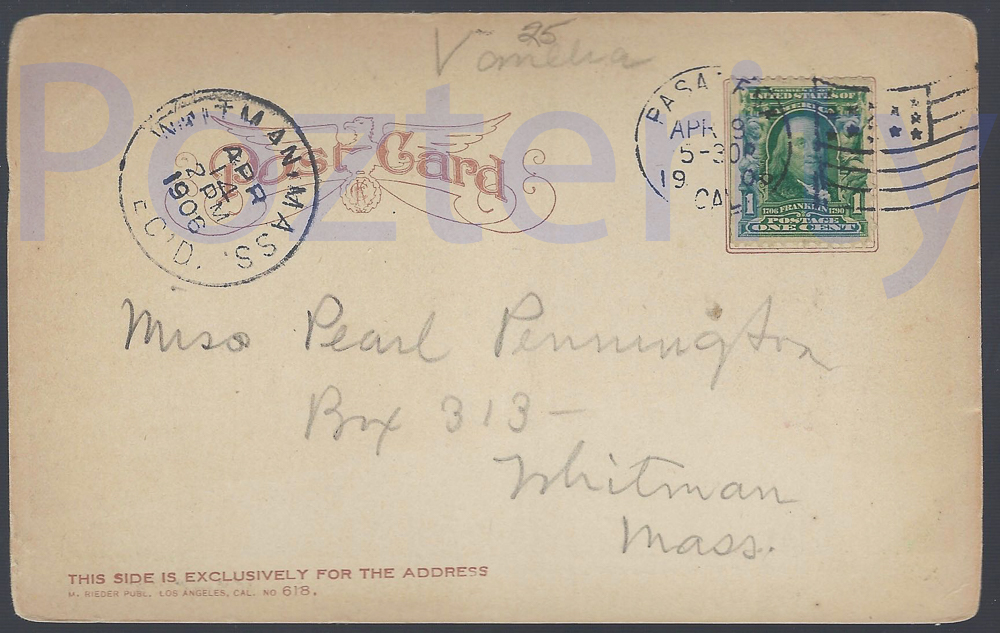 25
Pozteriy
Post Card
WHITMAN, MASS.
APR
14
2 PM
1906
REC'D.
PASA
APR 9
5-30P
19 06
CAL
SERIES 1902
UNITED STATES OF
AMERICA
1 1
1706 FRANKLIN 1790
POSTAGE
ONE CENT
Miss Pearl Pennington
Box 313-
Whitman
Mass.
THIS SIDE IS EXCLUSIVELY FOR THE ADDRESS
M. RIEDER PUBL. LOS ANGELES, CAL. NO 618.